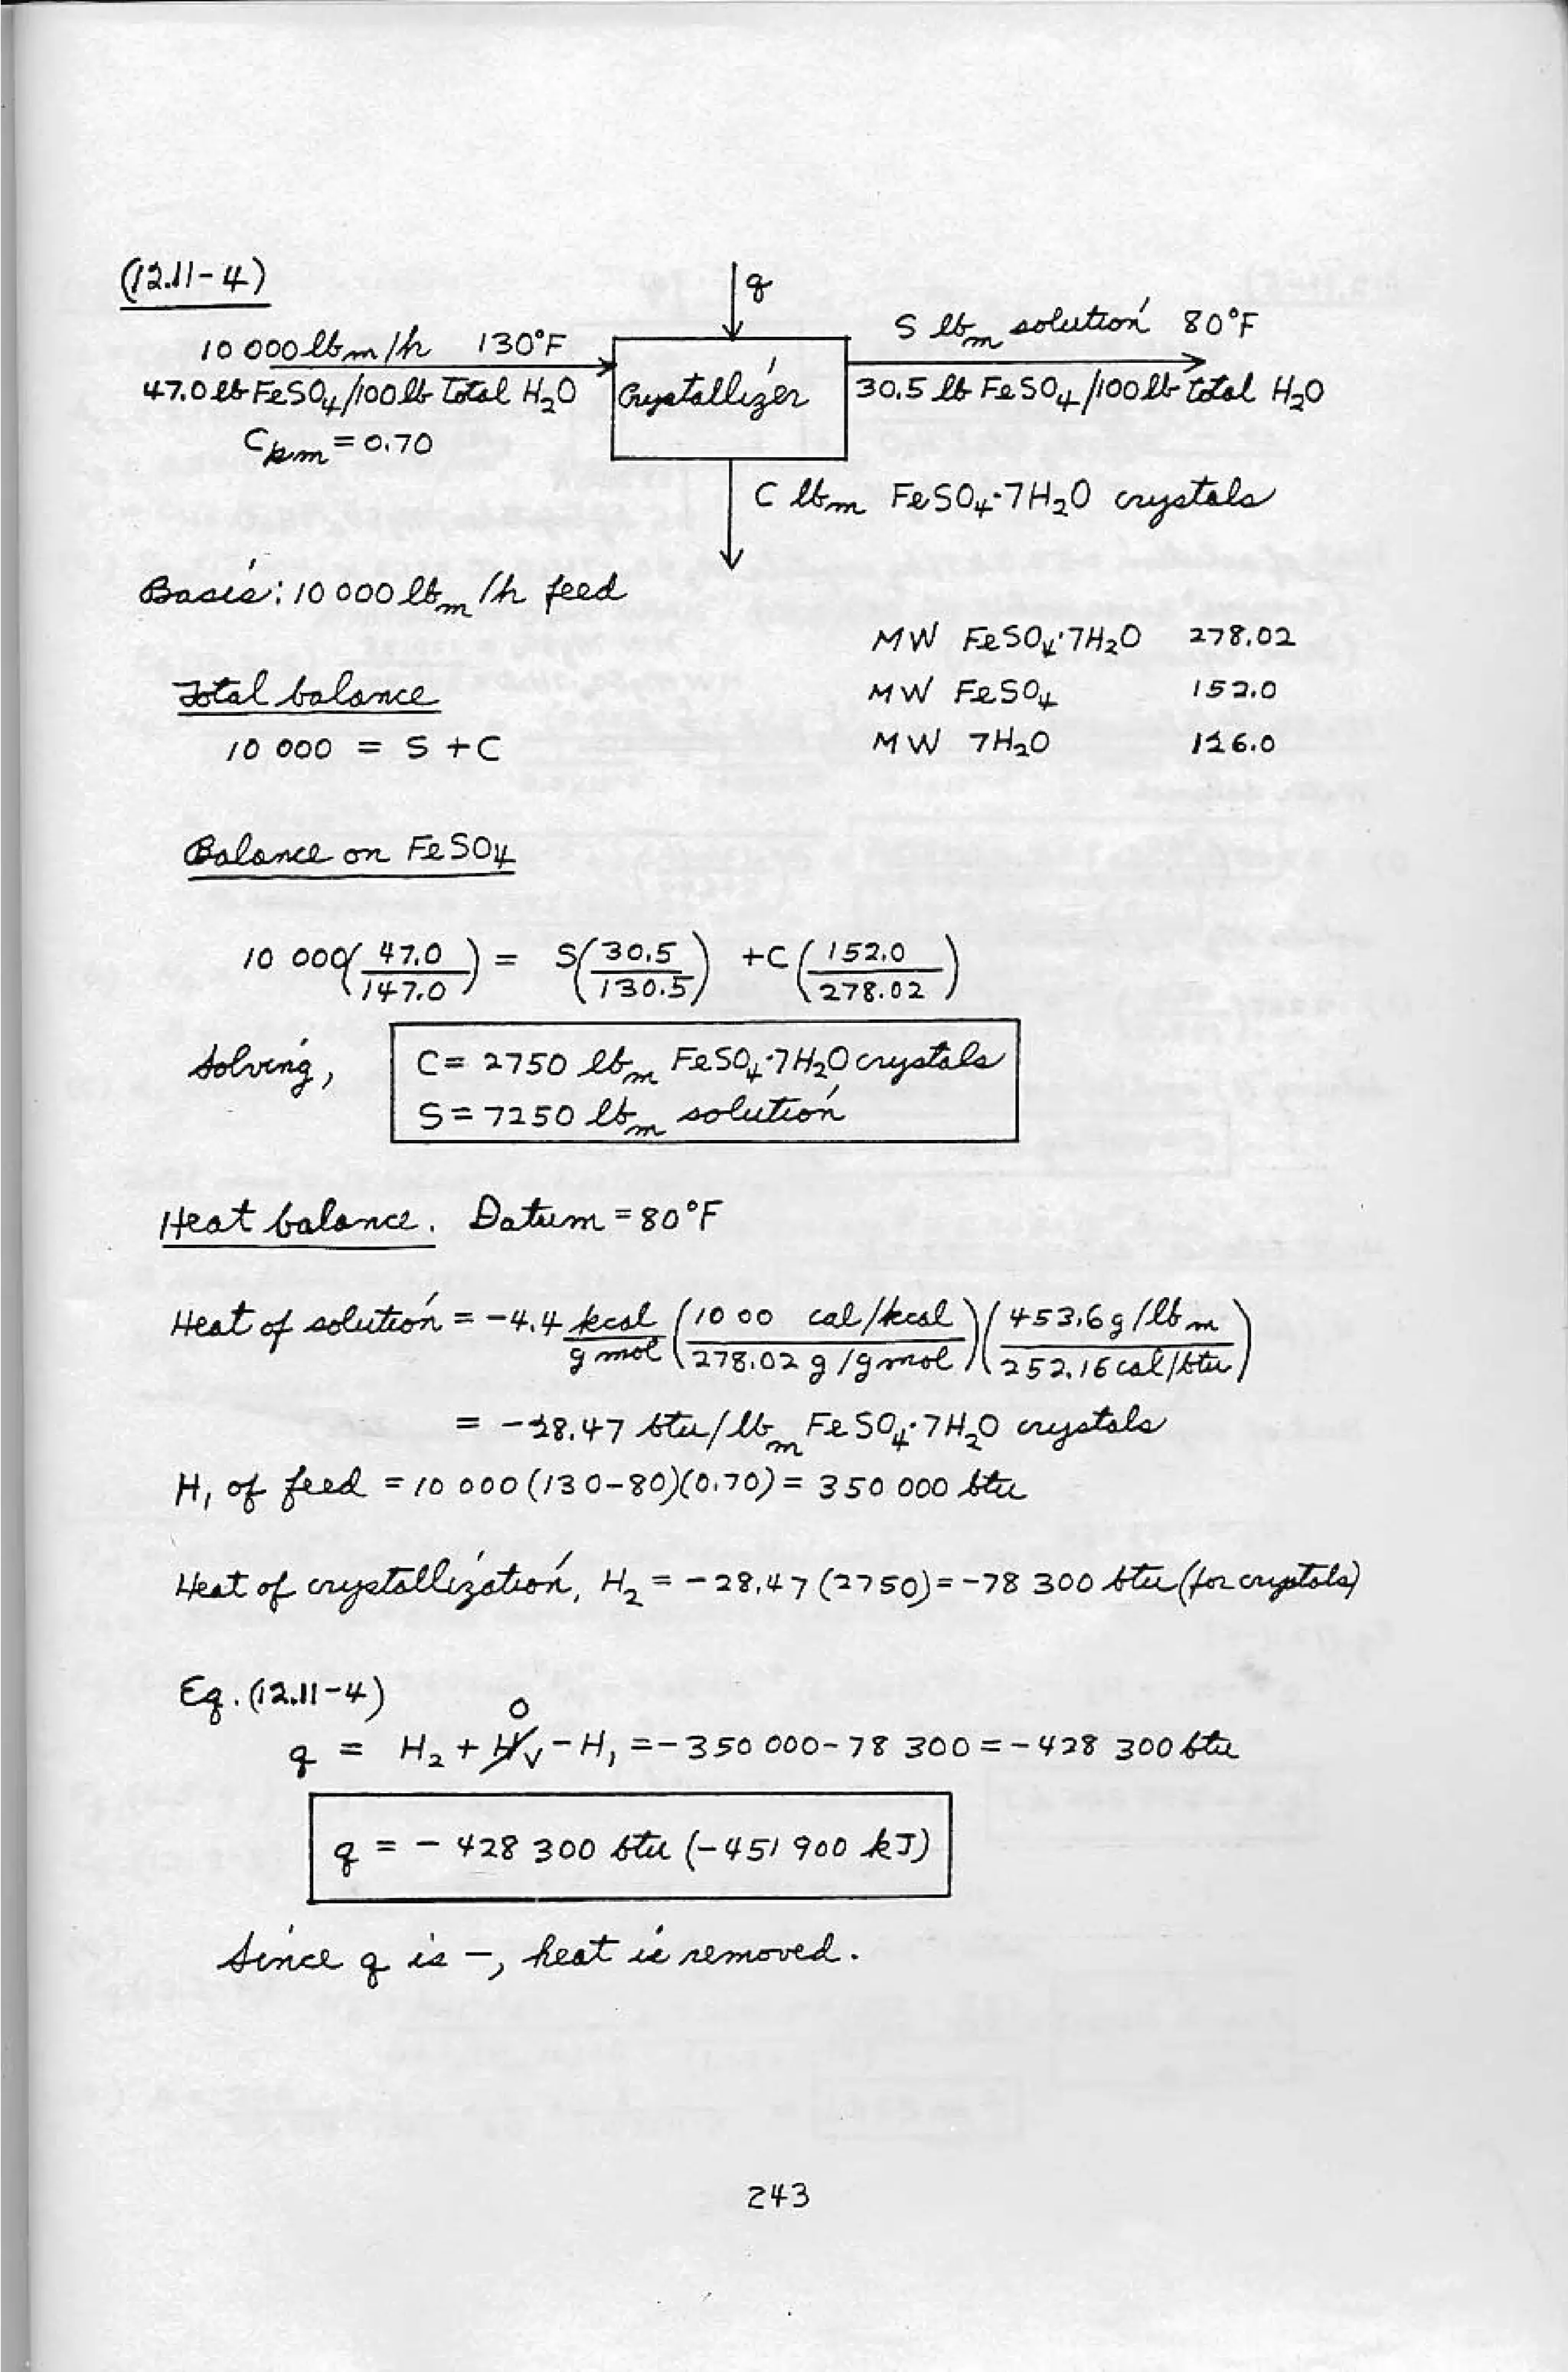 (12.11-4)
q
10 000 lbm/h 130°F
S lbm solution 80°F
47.0 lb FeSO4/100 lb Total H2O
Crystallizer
30.5 lb FeSO4/100 lb total H2O
Cpm = 0.70
C lbm FeSO4·7H2O crystals
Basis: 10 000 lbm/h feed
MW FeSO4·7H2O 278.02
Total balance
MW FeSO4 152.0
10 000 = S + C
MW 7H2O 126.0
Balance on FeSO4
10 000(47.0/147.0) = S(30.5/130.5) + C(152.0/278.02)
Solving,
C = 2750 lbm FeSO4·7H2O crystals
S = 7250 lbm solution
Heat balance. Datum = 80°F
Heat of solution = -4.4 kcal/g mol (1000 cal/kcal / 278.02 g/g mol)(453.6 g/lbm / 252.16 cal/btu)
= -28.47 btu/lbm FeSO4·7H2O crystals
H1 of feed = 10 000(130-80)(0.70) = 350 000 btu
Heat of crystallization, H2 = -28.47(2750) = -78 300 btu (for crystals)
Eq. (12.11-4)
0
q = H2 + HV - H1 = -350 000 - 78 300 = -428 300 btu
q = - 428 300 btu (-451 900 kJ)
Since q is -, heat is removed.
243